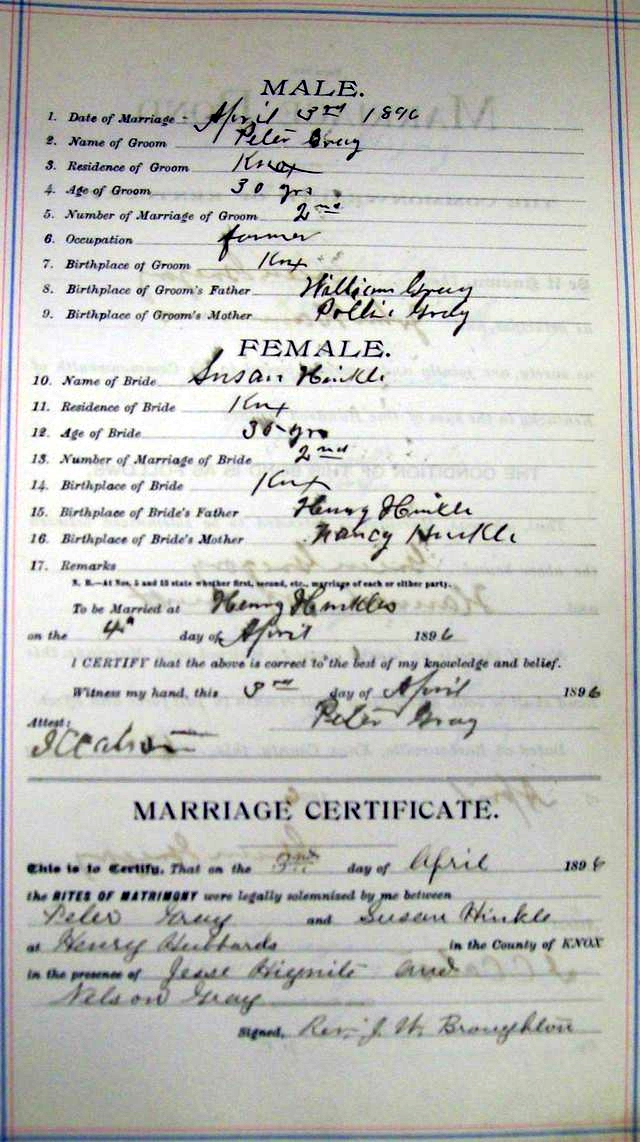 MALE.
1. Date of Marriage - April 3rd 1896
2. Name of Groom Peter Gray
3. Residence of Groom Knox
4. Age of Groom 30 yrs
5. Number of Marriage of Groom 2nd
6. Occupation farmer
7. Birthplace of Groom Knx
8. Birthplace of Groom's Father William Gray
9. Birthplace of Groom's Mother Pollie Gray
FEMALE.
10. Name of Bride Susan Hinkle
11. Residence of Bride Knx
12. Age of Bride yrs
13. Number of Marriage of Bride 2nd
14. Birthplace of Bride Knx
15. Birthplace of Bride's Father Henry Hinkle
16. Birthplace of Bride's Mother Nancy Hinkle
17. Remarks
N. B.—At Nos. 5 and 13 state whether first, second, etc., marriage of each or either party.
To be Married at Henry Hinkles
on the 4th day of April 1896
I CERTIFY that the above is correct to the best of my knowledge and belief.
Witness my hand, this 3rd day of April 1896
Peter Gray
Attest:
MARRIAGE CERTIFICATE.
This is to Certify, That on the day of April 1896
the RITES OF MATRIMONY were legally solemnized by me between
Peter Gray and Susan Hinkle
at Henry Hubbards in the County of KNOX
in the presence of Jesse Hignite and
Nelson Gray
Signed, Rev. J. W. Broughton